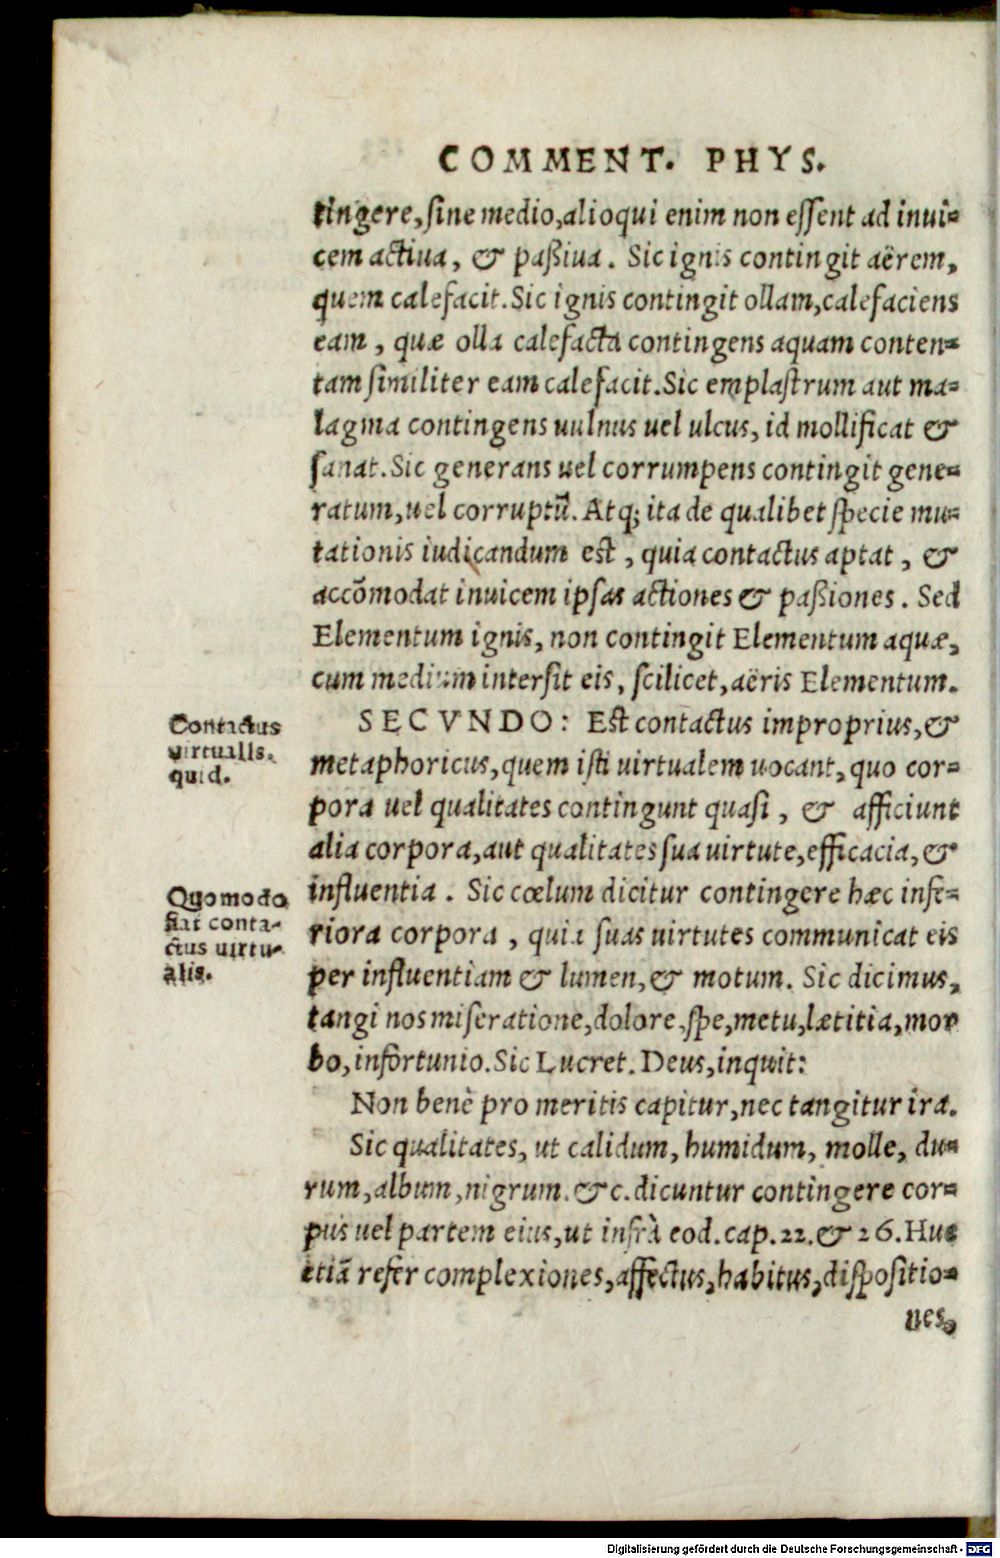 COMMENT. PHYS.
tingere, sine medio, alioqui enim non essent ad inui-
cem actiua, & paßiua. Sic ignis contingit aërem,
quem calefacit. Sic ignis contingit ollam, calefaciens
eam, quæ olla calefacta contingens aquam conten-
tam similiter eam calefacit. Sic emplastrum aut ma-
lagma contingens uulnus uel ulcus, id mollificat &
sanat. Sic generans uel corrumpens contingit gene-
ratum, uel corruptũ. Atq; ita de qualibet specie mu-
tationis iudicandum est, quia contactus aptat, &
accõmodat inuicem ipsas actiones & paßiones. Sed
Elementum ignis, non contingit Elementum aquæ,
cum medium intersit eis, scilicet, aëris Elementum.
Contactus
uirtualis.
quid.
SECVNDO: Est contactus improprius, &
metaphoricus, quem isti uirtualem uocant, quo cor-
pora uel qualitates contingunt quasi, & afficiunt
alia corpora, aut qualitates sua uirtute, efficacia, &
Quomodo
fiat conta-
ctus uirtu-
alis.
influentia. Sic cœlum dicitur contingere hæc infe-
riora corpora, quia suas uirtutes communicat eis
per influentiam & lumen, & motum. Sic dicimus,
tangi nos miseratione, dolore, spe, metu, lætitia, mor
bo, infortunio. Sic Lucret. Deus, inquit:
Non benè pro meritis capitur, nec tangitur ira.
Sic qualitates, ut calidum, humidum, molle, du-
rum, album, nigrum. &c. dicuntur contingere cor-
pus uel partem eius, ut infrà eod. cap. 22. & 26. Huc
etiã refer complexiones, affectus, habitus, dispositio-
nes,
Digitalisierung gefördert durch die Deutsche Forschungsgemeinschaft - DFG